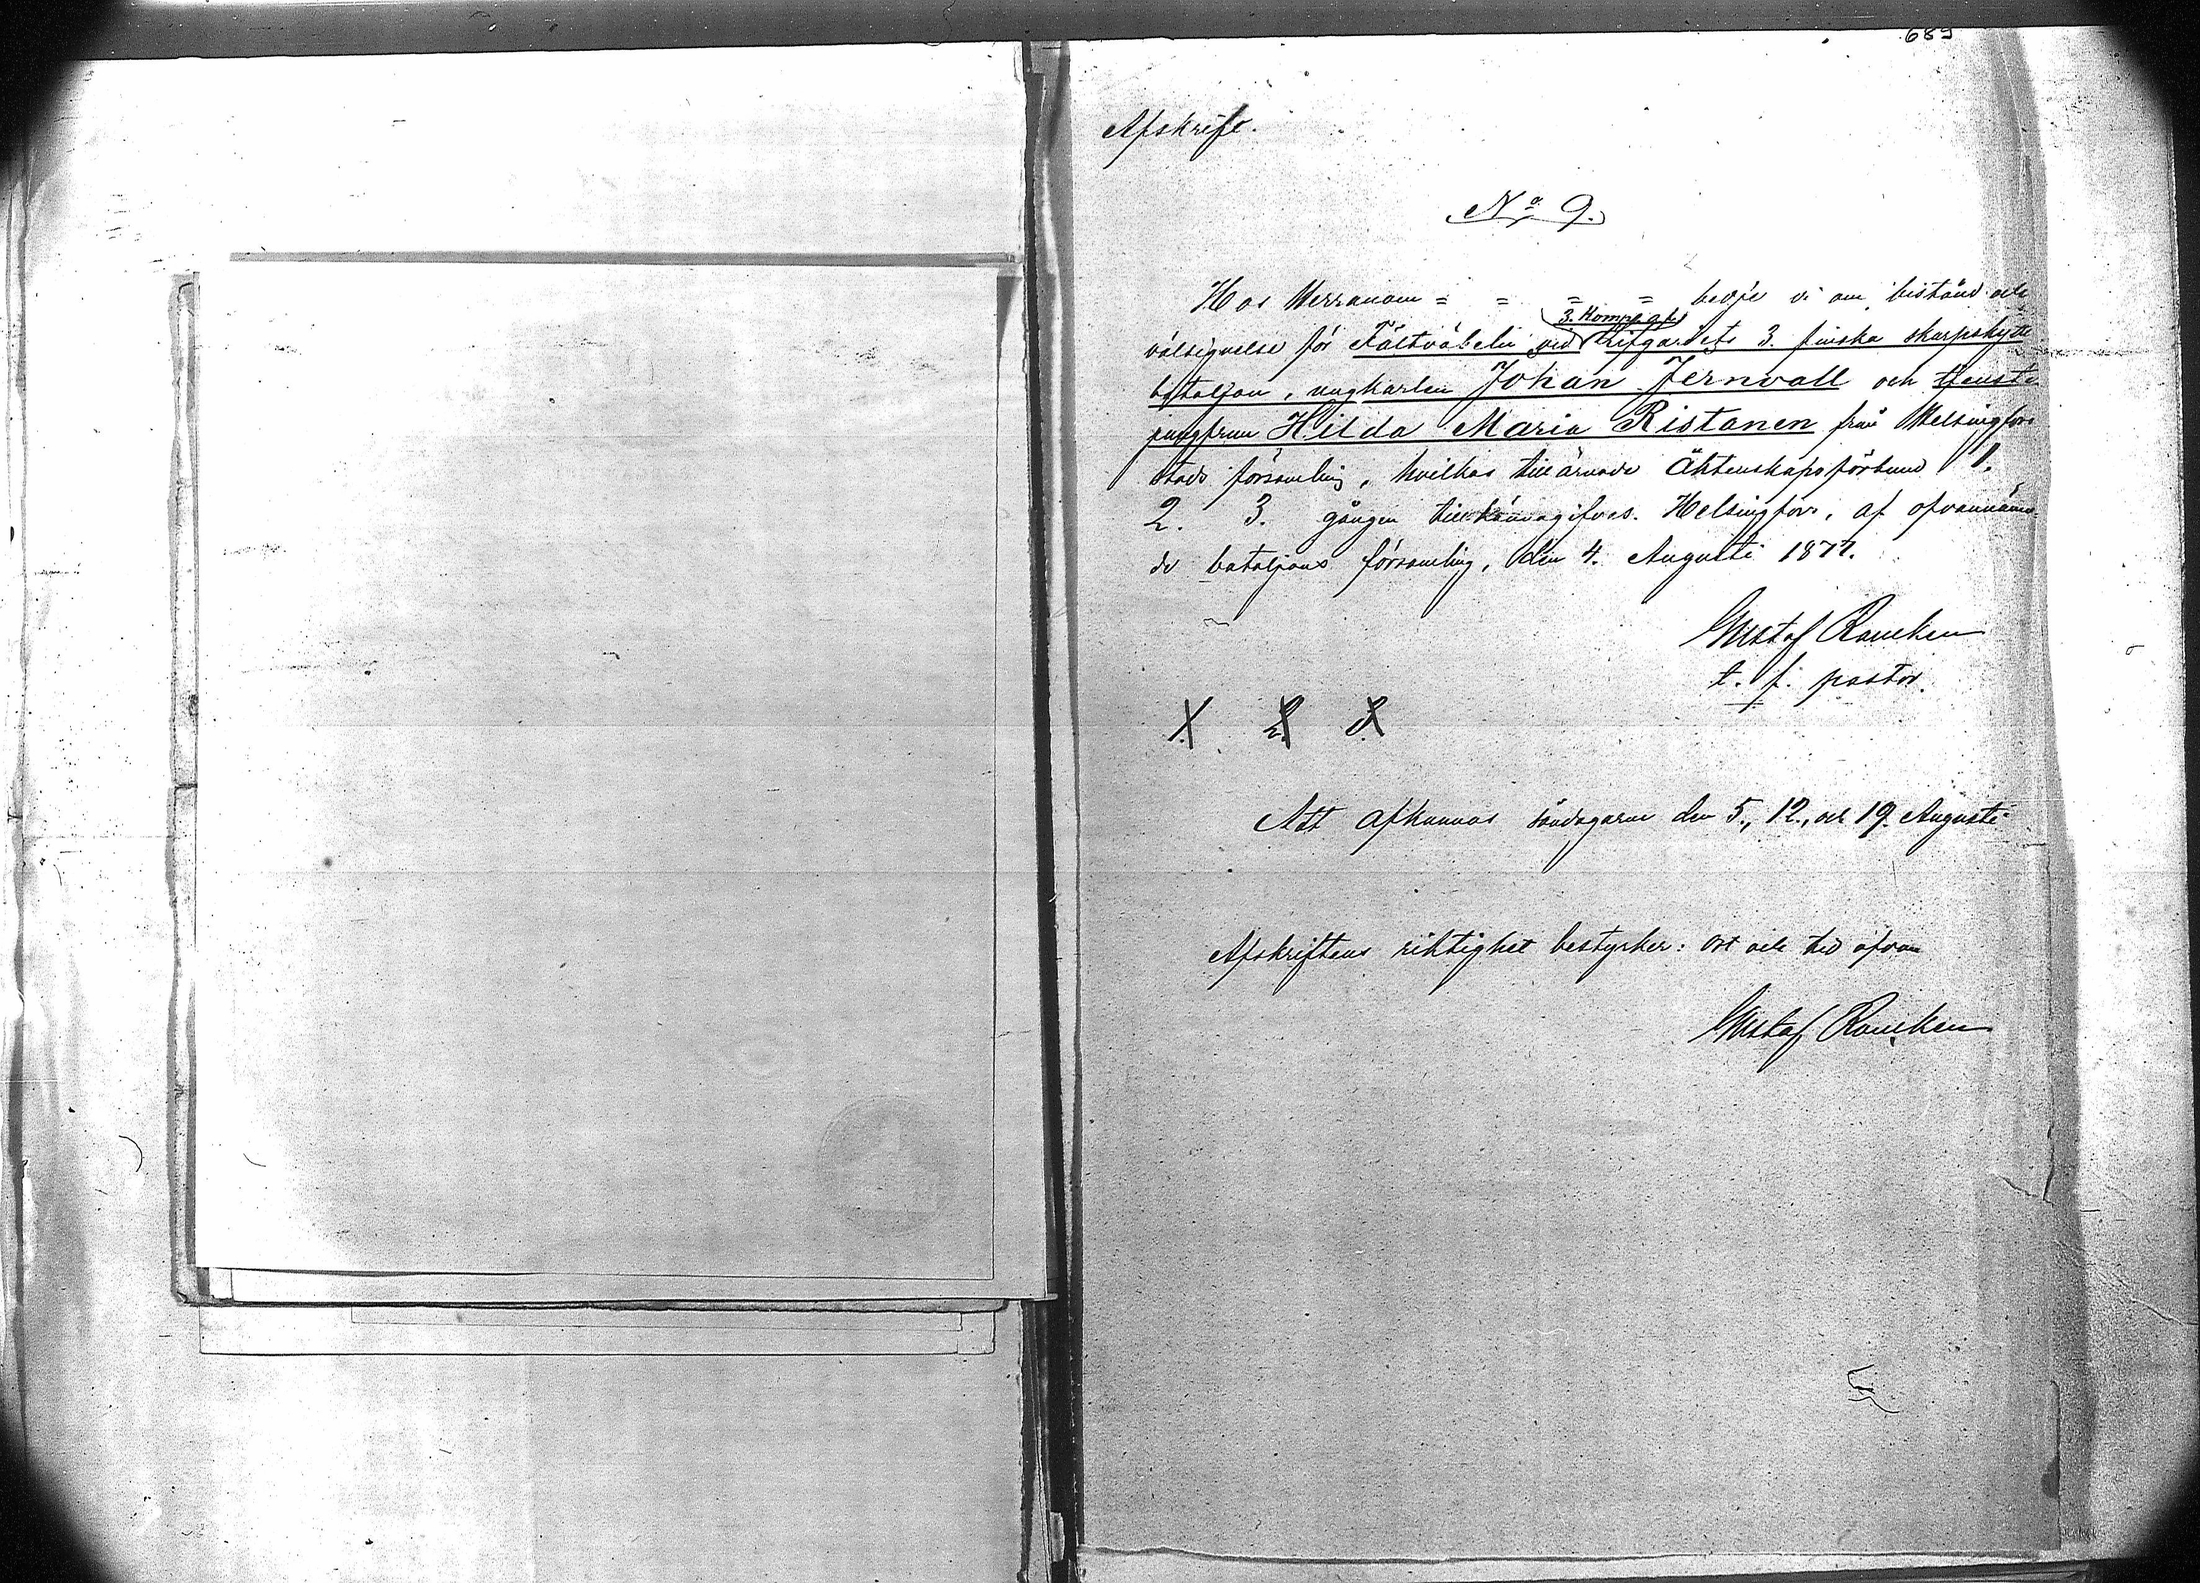 689
Afskrift.
No 9.
Hos Herranom = = = = bedje vi om bistånd och
3. Komp. af
välsignelse för Fältväbeln vid Lifgardets 3. finska skarpskytte
bataljon, ungkarlen Johan Jernvall och tjenste-
jungfrun Hilda Maria Ristanen från Helsingfors
stads församling, hvilkas tillärnade äktenskapsförbund 1.
2. 3. gången tillkännagifves. Helsingfors, af ofvannämn-
de bataljons församling, den 4. Augusti 1877.
Gustaf Rancken
t. f. pastor.
1. 2. 3.
Att afkunnas söndagarne den 5., 12., och 19. Augusti
Afskriftens riktighet bestyrker: ort och tid ofvan
Gustaf Rancken